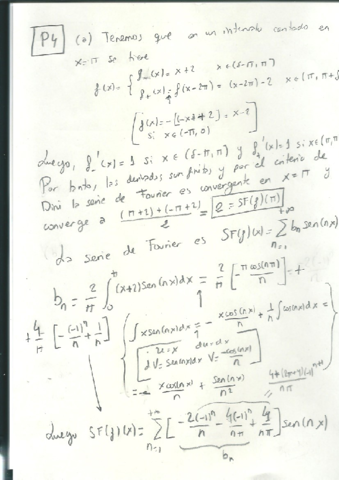 P4 (a) Tenemos que en un intervalo centrado en
x=π se tiene
f(x) = { f₋(x) = x+2 x∈(δ-π, π)
f₊(x) = f(x-2π) = (x-2π)-2 x∈(π, π+δ
[ f(x) = -[(-x)+2] = x-2
si x∈(-π, 0) ]
Luego, f₋'(x)=1 si x∈(δ-π, π) y f₊'(x)=1 si x∈(π, π
Por tanto, las derivadas son finitas, y por el criterio de
Dini la serie de Fourier es convergente en x=π y
converge a ((π+2)+(-π+2))/2 = 2 = SF(f)(π)
La serie de Fourier es SF(f)(x) = Σ_{n=1}^{+∞} bₙ sen(nx)
bₙ = 2/π ∫₀^π (x+2) sen(nx) dx = 2/π [-π cos(nπ)/n] = +
+ 4/π [-(-1)ⁿ/n + 1/n]
∫ x sen(nx) dx = - x cos(nx)/n + 1/n ∫ cos(nx) dx =
u=x du=dx
dV = sen(nx) dx V = -cos(nx)/n
= - x cos(nx)/n + sen(nx)/n²
Luego SF(f)(x) = Σ_{n=1}^{+∞} [ -2(-1)ⁿ/n - 4(-1)ⁿ/nπ + 4/nπ ] sen(nx)
bₙ